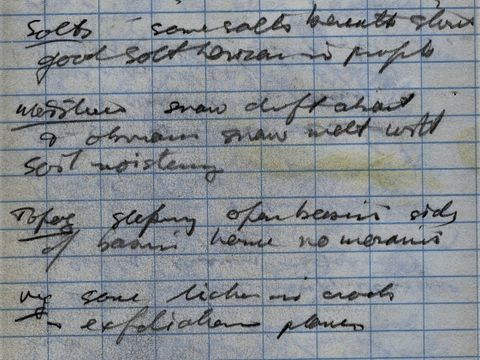 Salts some salts beneath stone
good salt horizon in profile
Moisture snow drift about
& obvious snow melt with
soil moistening
Topog sloping open basin side
of basin hence no moraine
veg some lichen in cracks
exfoliation planes